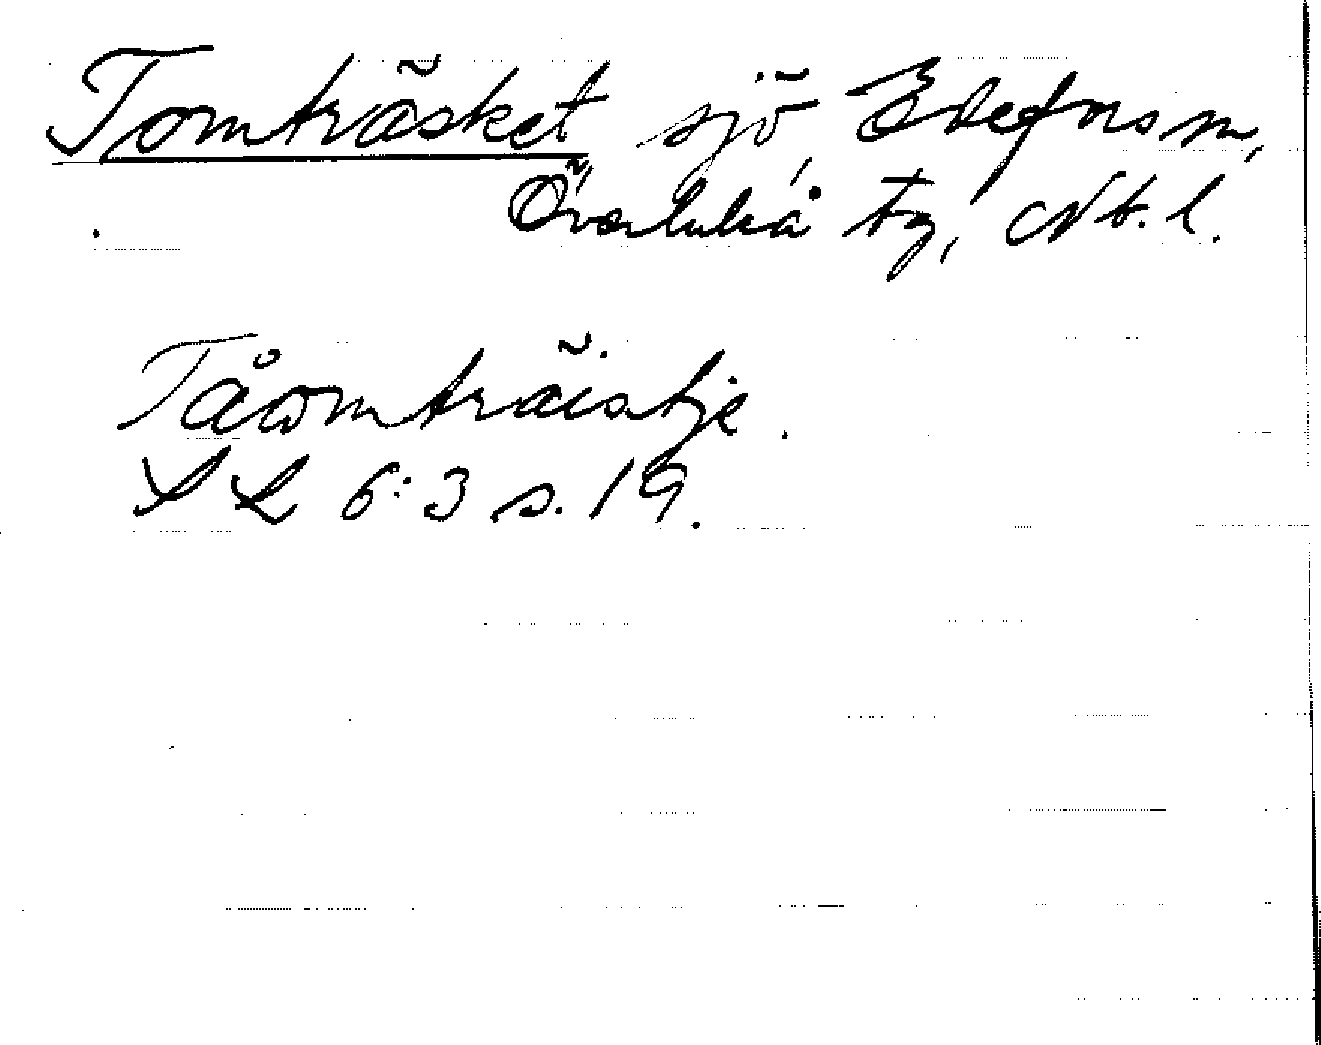 Tomträsket sjö, Edefors sn,
Överluleå tg, Nb. l.
Tåomträistje.
SL 6:3 s. 19.